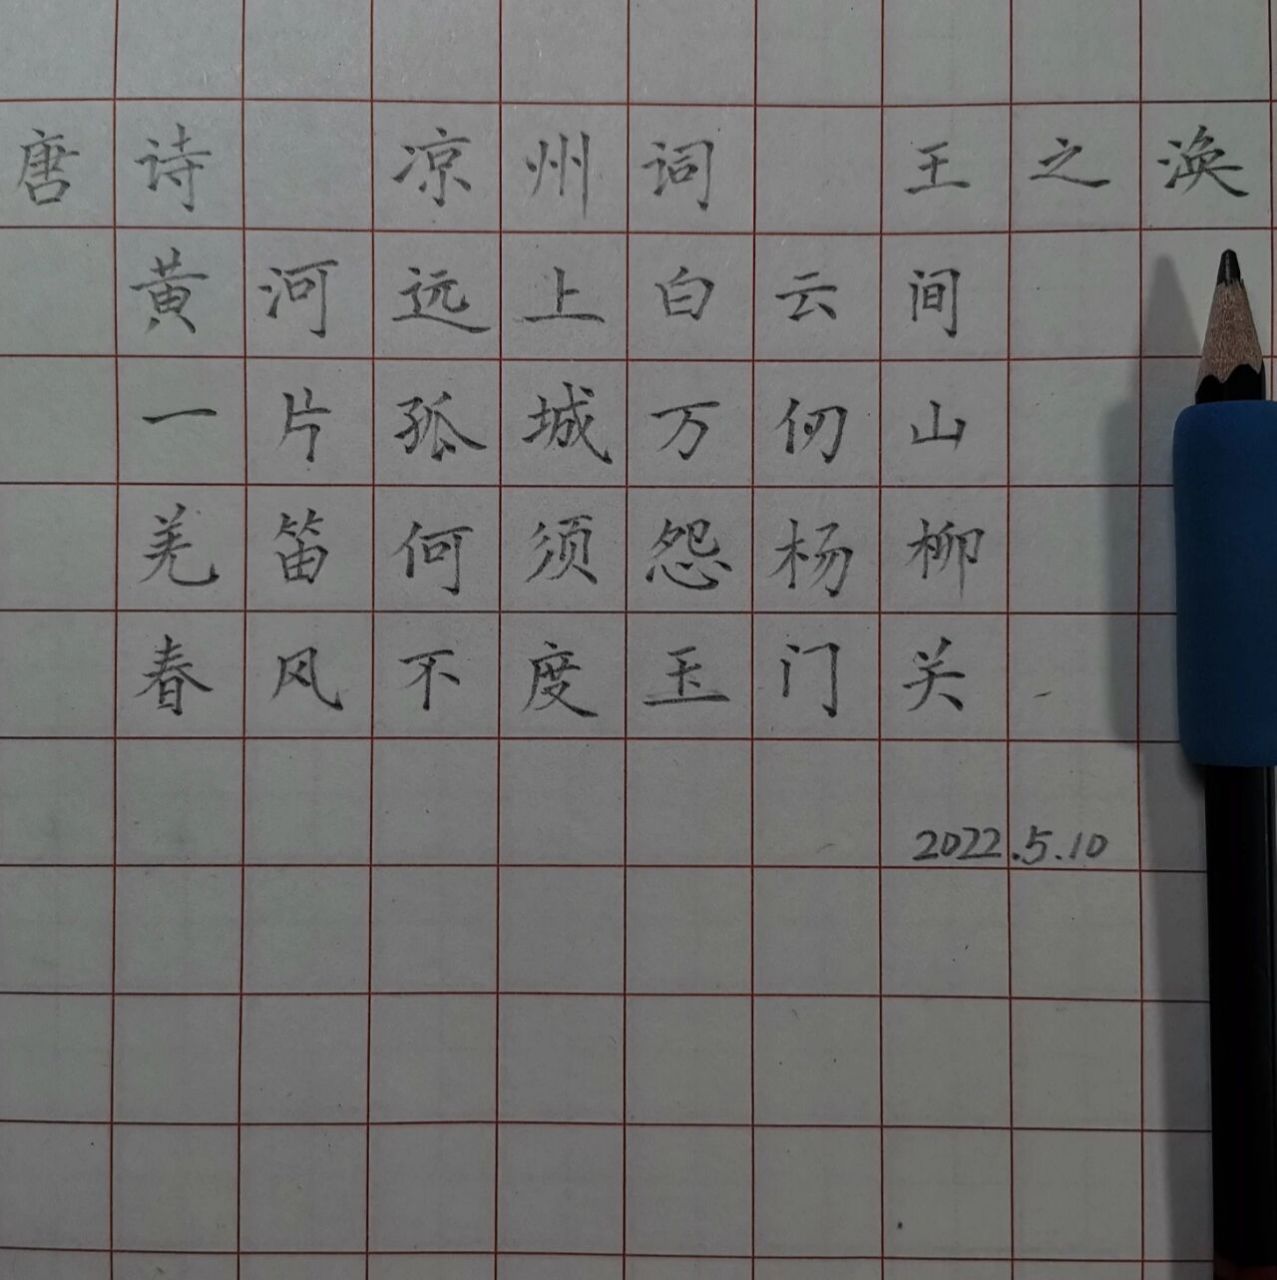 唐诗 凉州词 王之涣
黄河远上白云间
一片孤城万仞山
羌笛何须怨杨柳
春风不度玉门关
2022.5.10